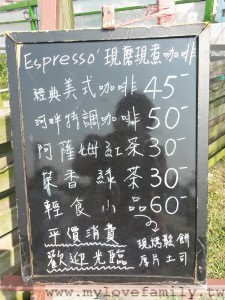 Espresso 現磨現煮咖啡
經典美式咖啡 45-
河畔特調咖啡 50-
阿薩姆紅茶 30-
茉香綠茶 30-
輕食小品 60-
平價消費
歡迎光臨
現烤鬆餅
厚片土司
www.mylovefamily.tw